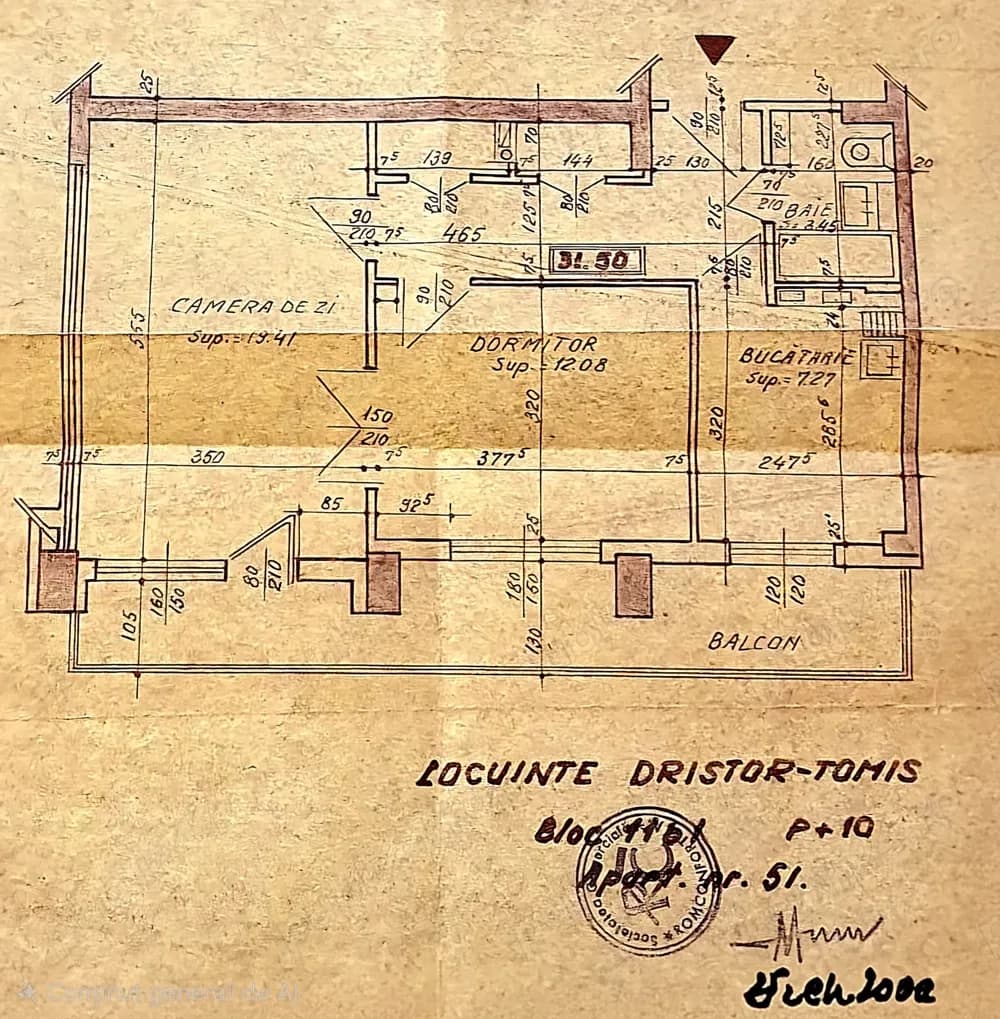 25
90
210
125
125
75
139
70
75
144
25
130
125
227⁵
160
20
75
80
210
125
80
210
70
210
BAIE
S=3.45
215
90
210
75
465
31.50
75
80
210
75
90
210
CAMERA DE ZI
Sup.=19.41
555
DORMITOR
Sup.=12.08
BUCĂTĂRIE
Sup.=7.27
24
320
320
285⁶
150
210
75
75
360
75
377⁵
75
247⁵
85
92⁵
25
25
80
210
160
150
105
180
150
130
120
120
BALCON
LOCUINTE DRISTOR-TOMIS
Bloc P+10
Apart. nr. 51.
Societatea
ROMCONFORT